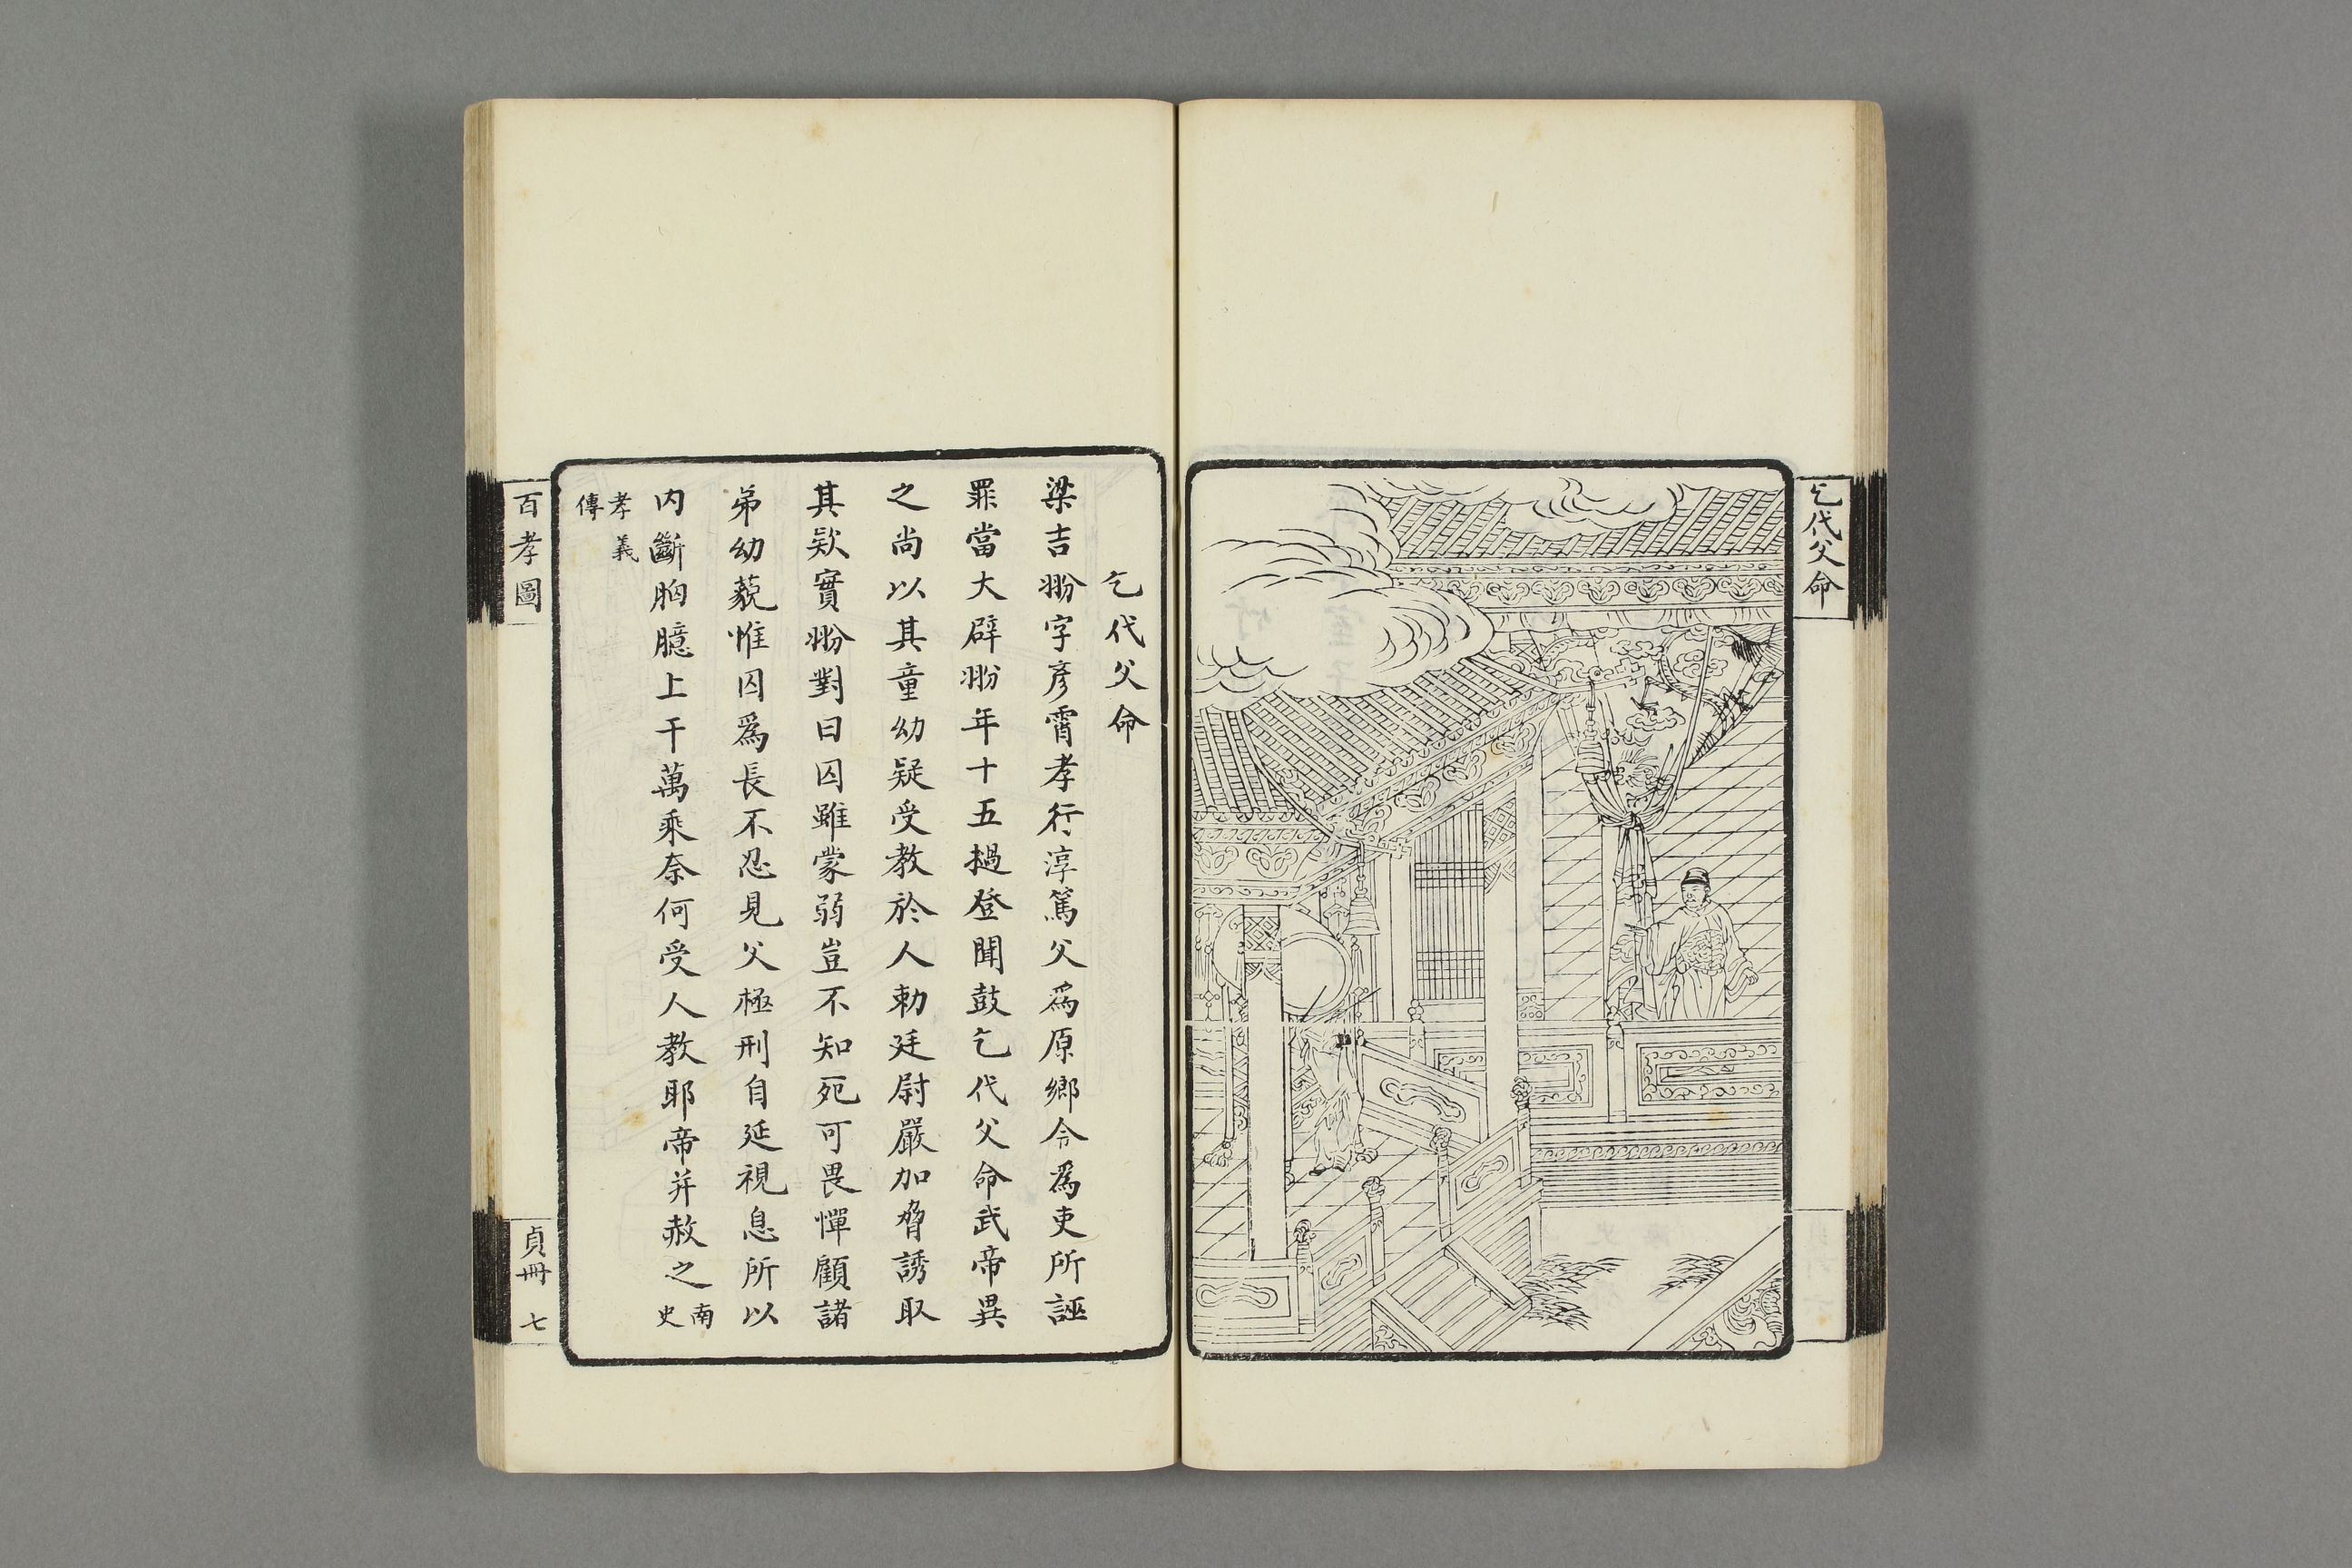 乞代父命
乞代父命
梁吉翂字彥霄孝行淳篤父爲原鄉令爲吏所誣
罪當大辟翂年十五撾登聞鼓乞代父命武帝異
之尚以其童幼疑受教於人勅廷尉嚴加脅誘取
其欵實翂對曰囚雖蒙弱豈不知死可畏憚顧諸
弟幼藐惟囚爲長不忍見父極刑自延視息所以
内斷胸臆上干萬乘奈何受人教耶帝并赦之南史
孝義傳
百孝圖
貞冊 七